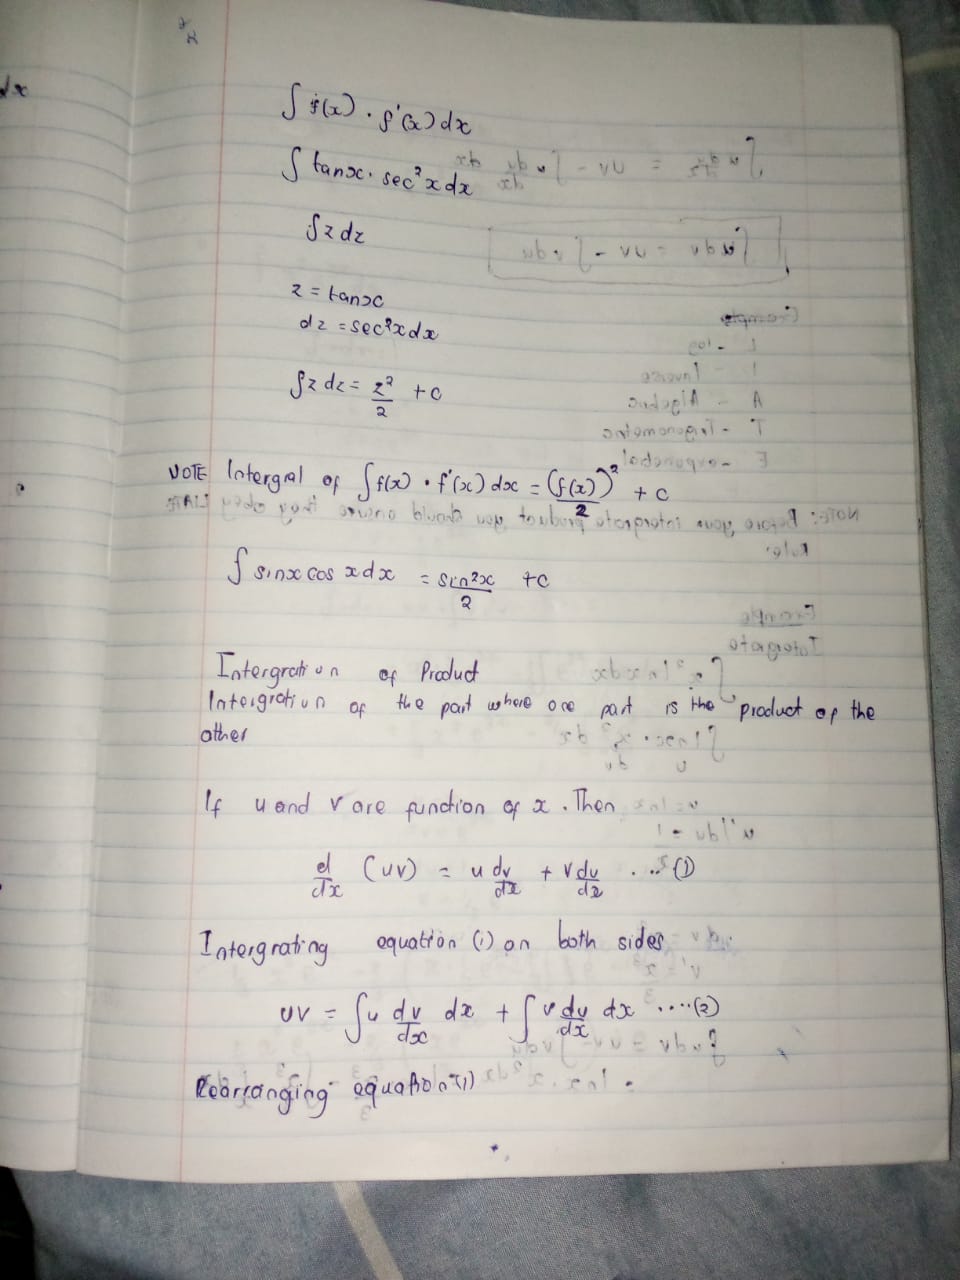 dx
∫ f(x) . f'(x) dx
∫ tanx . sec²x dx
∫z dz
z = tanx
dz = sec²x dx
∫z dz = z²/2 + c
NOTE Intergral of ∫ f(x) . f'(x) dx = (f(x))²/2 + c
∫ sinx cos x dx = sin²x/2 + c
Intergration of Product
Intergration of the part where one part is the product of the
other
If u and v are function of x. Then
d/dx (uv) = u dv/dx + v du/dx .... (1)
Intergrating equation (1) on both sides
uv = ∫u dv/dx dx + ∫v du/dx dx ....(2)
Rearranging equation (1)